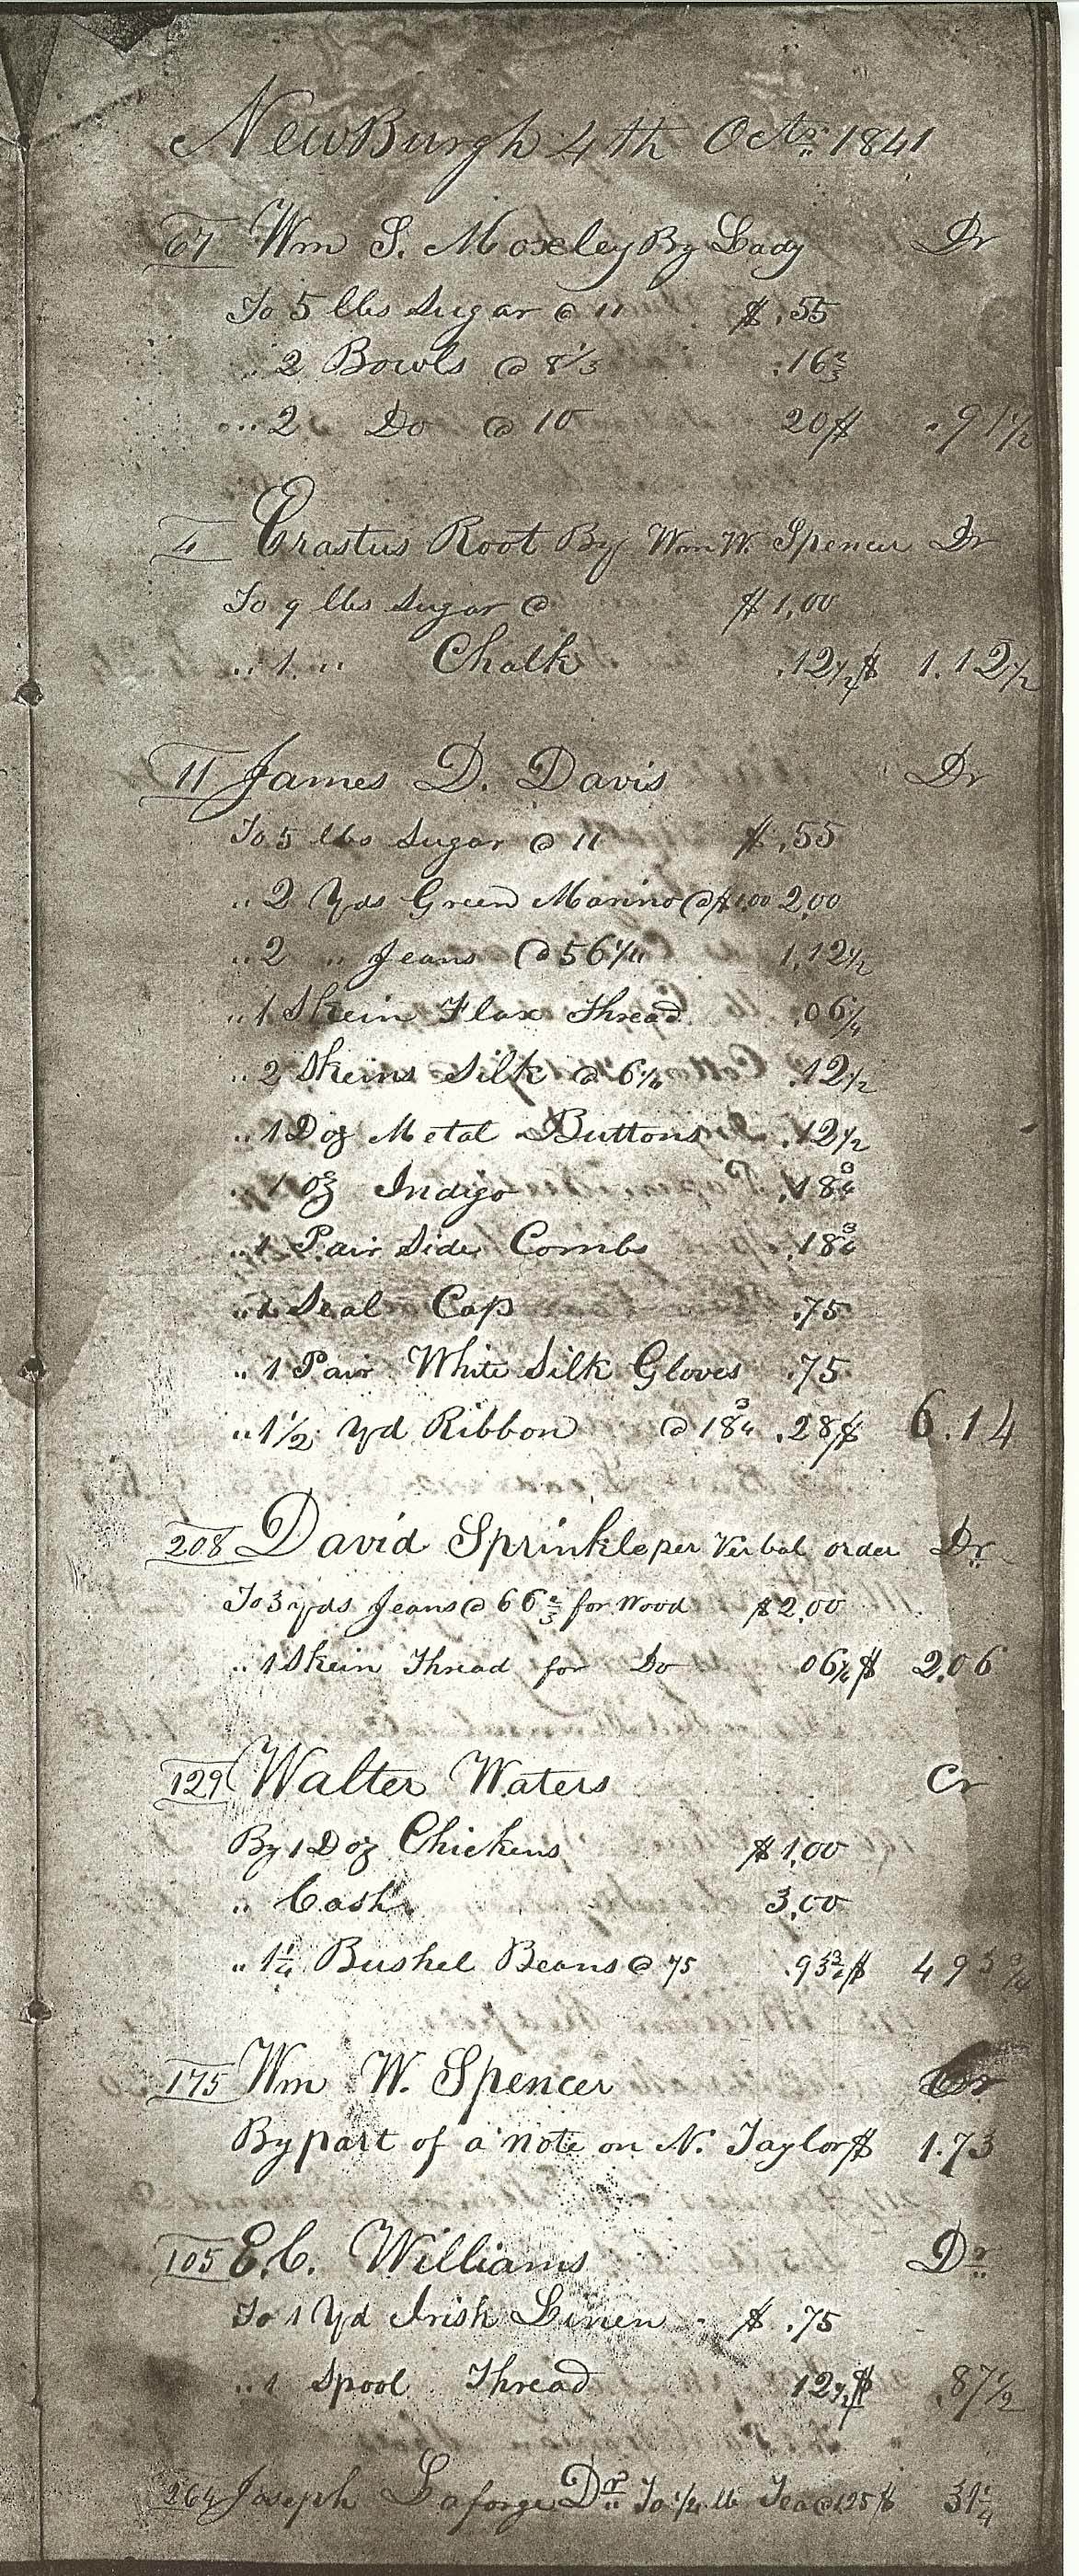 NewBurgh 4th Octr. 1841
67 Wm S. Moxley By Lady Dr
To 5 lbs Sugar @ 11 $ .55
" 2 Bowls @ 8⅓ .16⅔
" 2 Do @ 10 20$ .91½
4 Erastus Root By Wm W. Spencer Dr
To 9 lbs Sugar @ $ 1,00
" 1 " Chalk .12½$ 1.12½
11 James D. Davis Dr
To 5 lbs Sugar @ 11 $ .55
" 2 Yds Green Marino @ $1.00 2,00
" 2 " Jeans @ 56¼ 1,12½
" 1 Skein Flax Thread .06¼
" 2 Skeins Silk @ 6¼ .12½
" 1 Doz Metal Buttons .12½
" 1 oz Indigo .18¾
" 1 Pair Side Combs .18¾
" 1 Seal Cap .75
" 1 Pair White Silk Gloves .75
" 1½ yd Ribbon @ 18¾ .28$ 6.14
208 David Sprinkle per Verbal order Dr.
To 3 yds Jeans @ 66⅔ for Wood $2,00
" 1 Skein Thread for Do 06¼$ 2,06
129 Walter Waters Cr
By 1 Doz Chickens $ 1,00
" Cash 3,00
" 1¼ Bushel Beans @ 75 .93¾$ 4 93¾
175 Wm W. Spencer Cr
By part of a note on N. Taylor $ 1.73
105 E.C. Williams Dr.
To 1 Yd Irish Linen - $ .75
" 1 Spool Thread 12½$ .87½
264 Joseph Laforge Dr. To ¼ lb Tea @ 125 $ 31¼